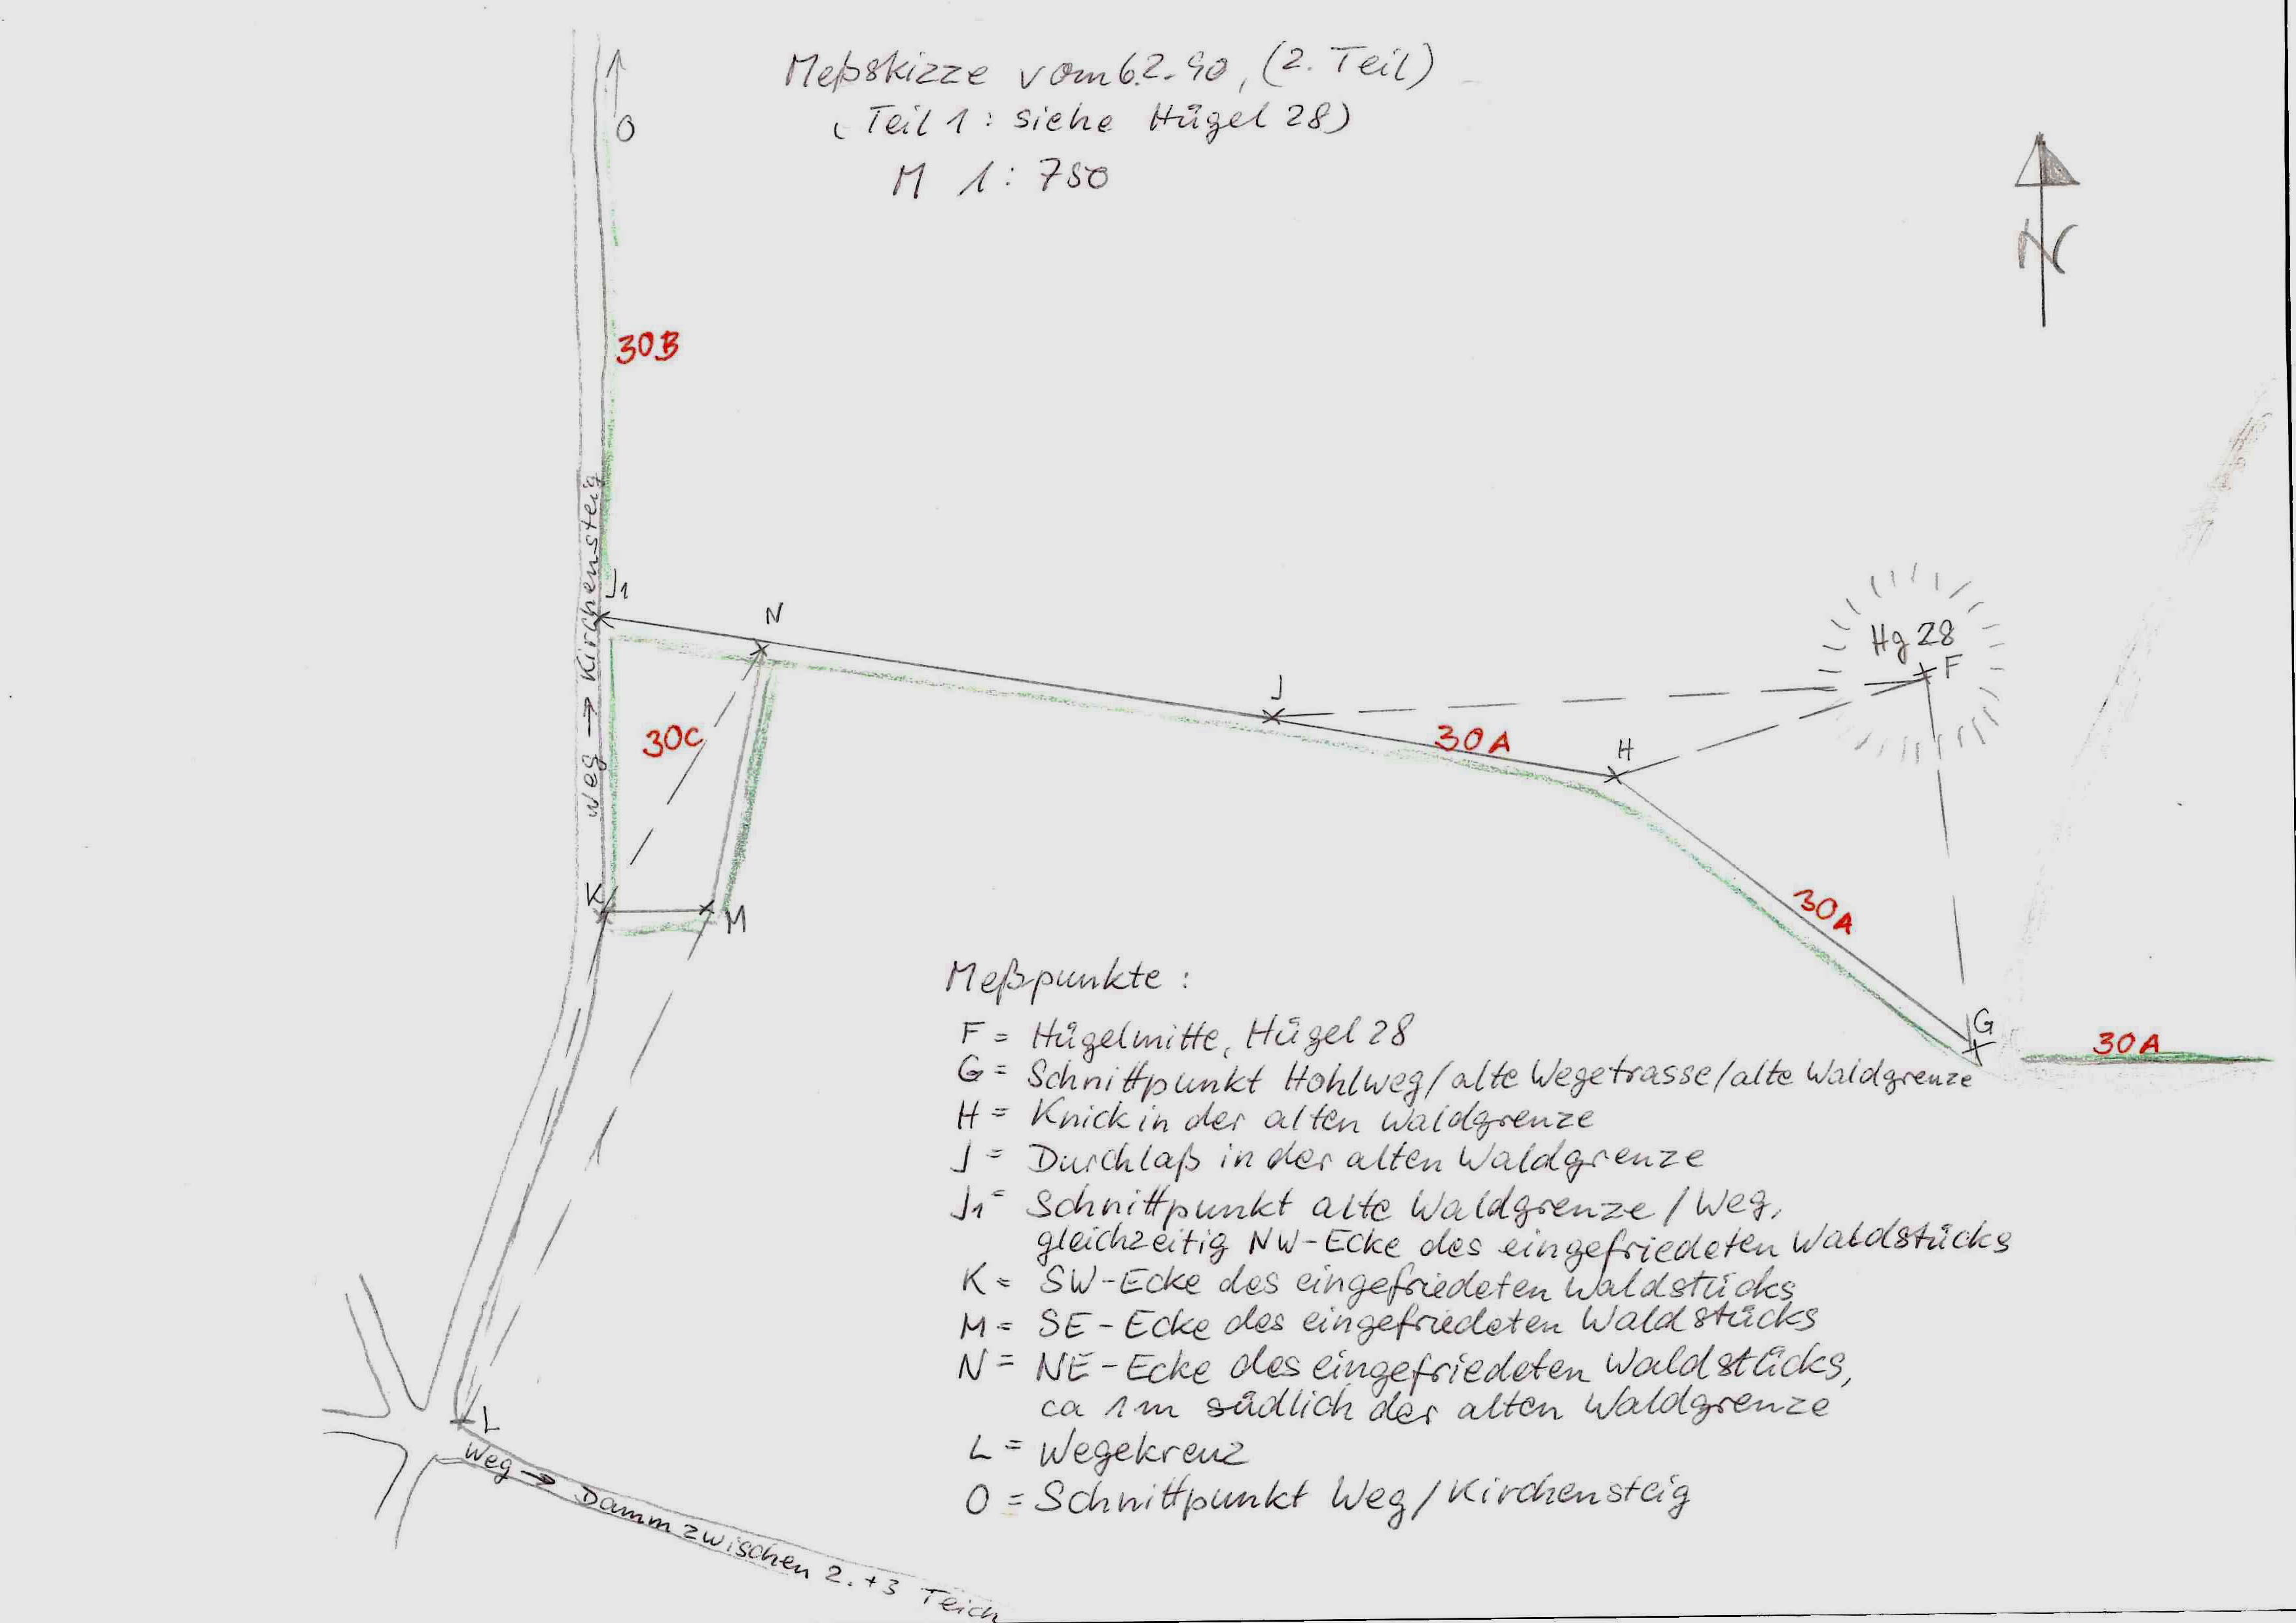 Meßskizze vom 6.2.90, (2. Teil)
(Teil 1: siehe Hügel 28)
M 1:750
O
N
30B
Weg → Kirchensteig
J1
N
Hg 28
F
J
30A
H
30C
K
M
30A
G
30A
Meßpunkte:
F = Hügelmitte, Hügel 28
G = Schnittpunkt Hohlweg/alte Wegetrasse/alte Waldgrenze
H = Knick in der alten Waldgrenze
J = Durchlaß in der alten Waldgrenze
J1 = Schnittpunkt alte Waldgrenze/Weg,
gleichzeitig NW-Ecke des eingefriedeten Waldstücks
K = SW-Ecke des eingefriedeten Waldstücks
M = SE-Ecke des eingefriedeten Waldstücks
N = NE-Ecke des eingefriedeten Waldstücks,
ca 1m südlich der alten Waldgrenze
L = Wegekreuz
O = Schnittpunkt Weg/Kirchensteig
L
Weg → Damm zwischen 2.+3 Teich